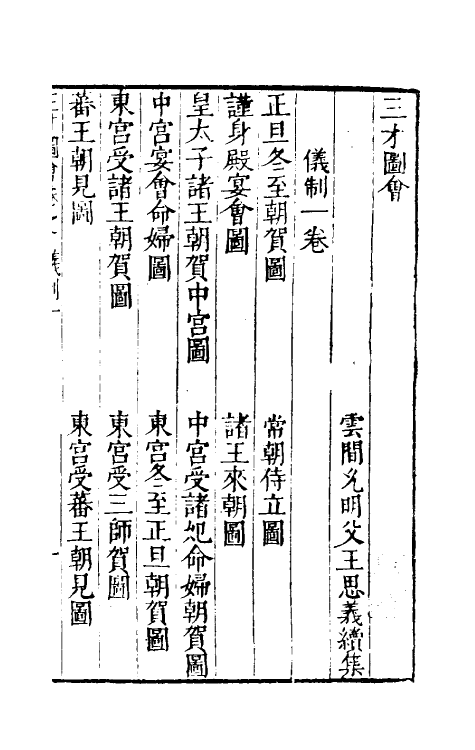 三才圖會
雲間允明父王思義續集
儀制一卷
正旦冬至朝賀圖 常朝侍立圖
謹身殿宴會圖 諸王來朝圖
皇太子諸王朝賀中宮圖 中宮受諸妃命婦朝賀圖
中宮宴會命婦圖 東宮冬至正旦朝賀圖
東宮受諸王朝賀圖 東宮受三師賀圖
蕃王朝見圖 東宮受蕃王朝見圖
三才圖會 儀制一